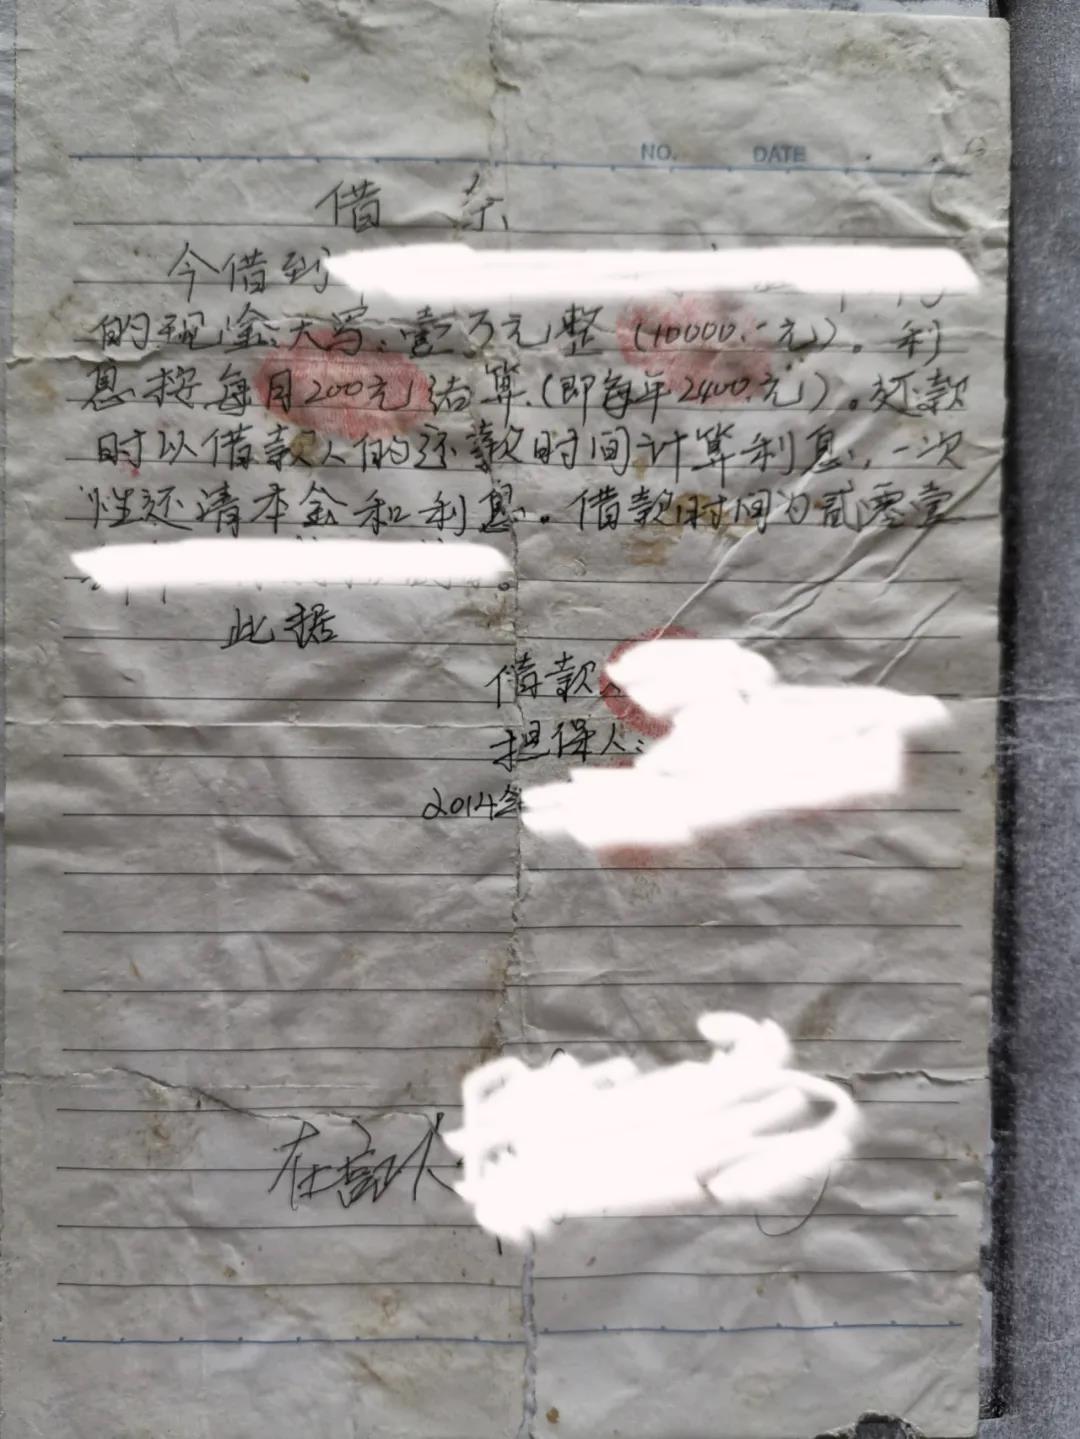 NO. DATE
借 条
今借到
的现金大写:壹万元整(10000.-元)。利
息按每月200元结算(即每年2400.元)。还款
时以借款人的还款时间计算利息,一次
性还清本金和利息。借款时间为贰零壹
此据
借款人
担保人:
2014年
在富人